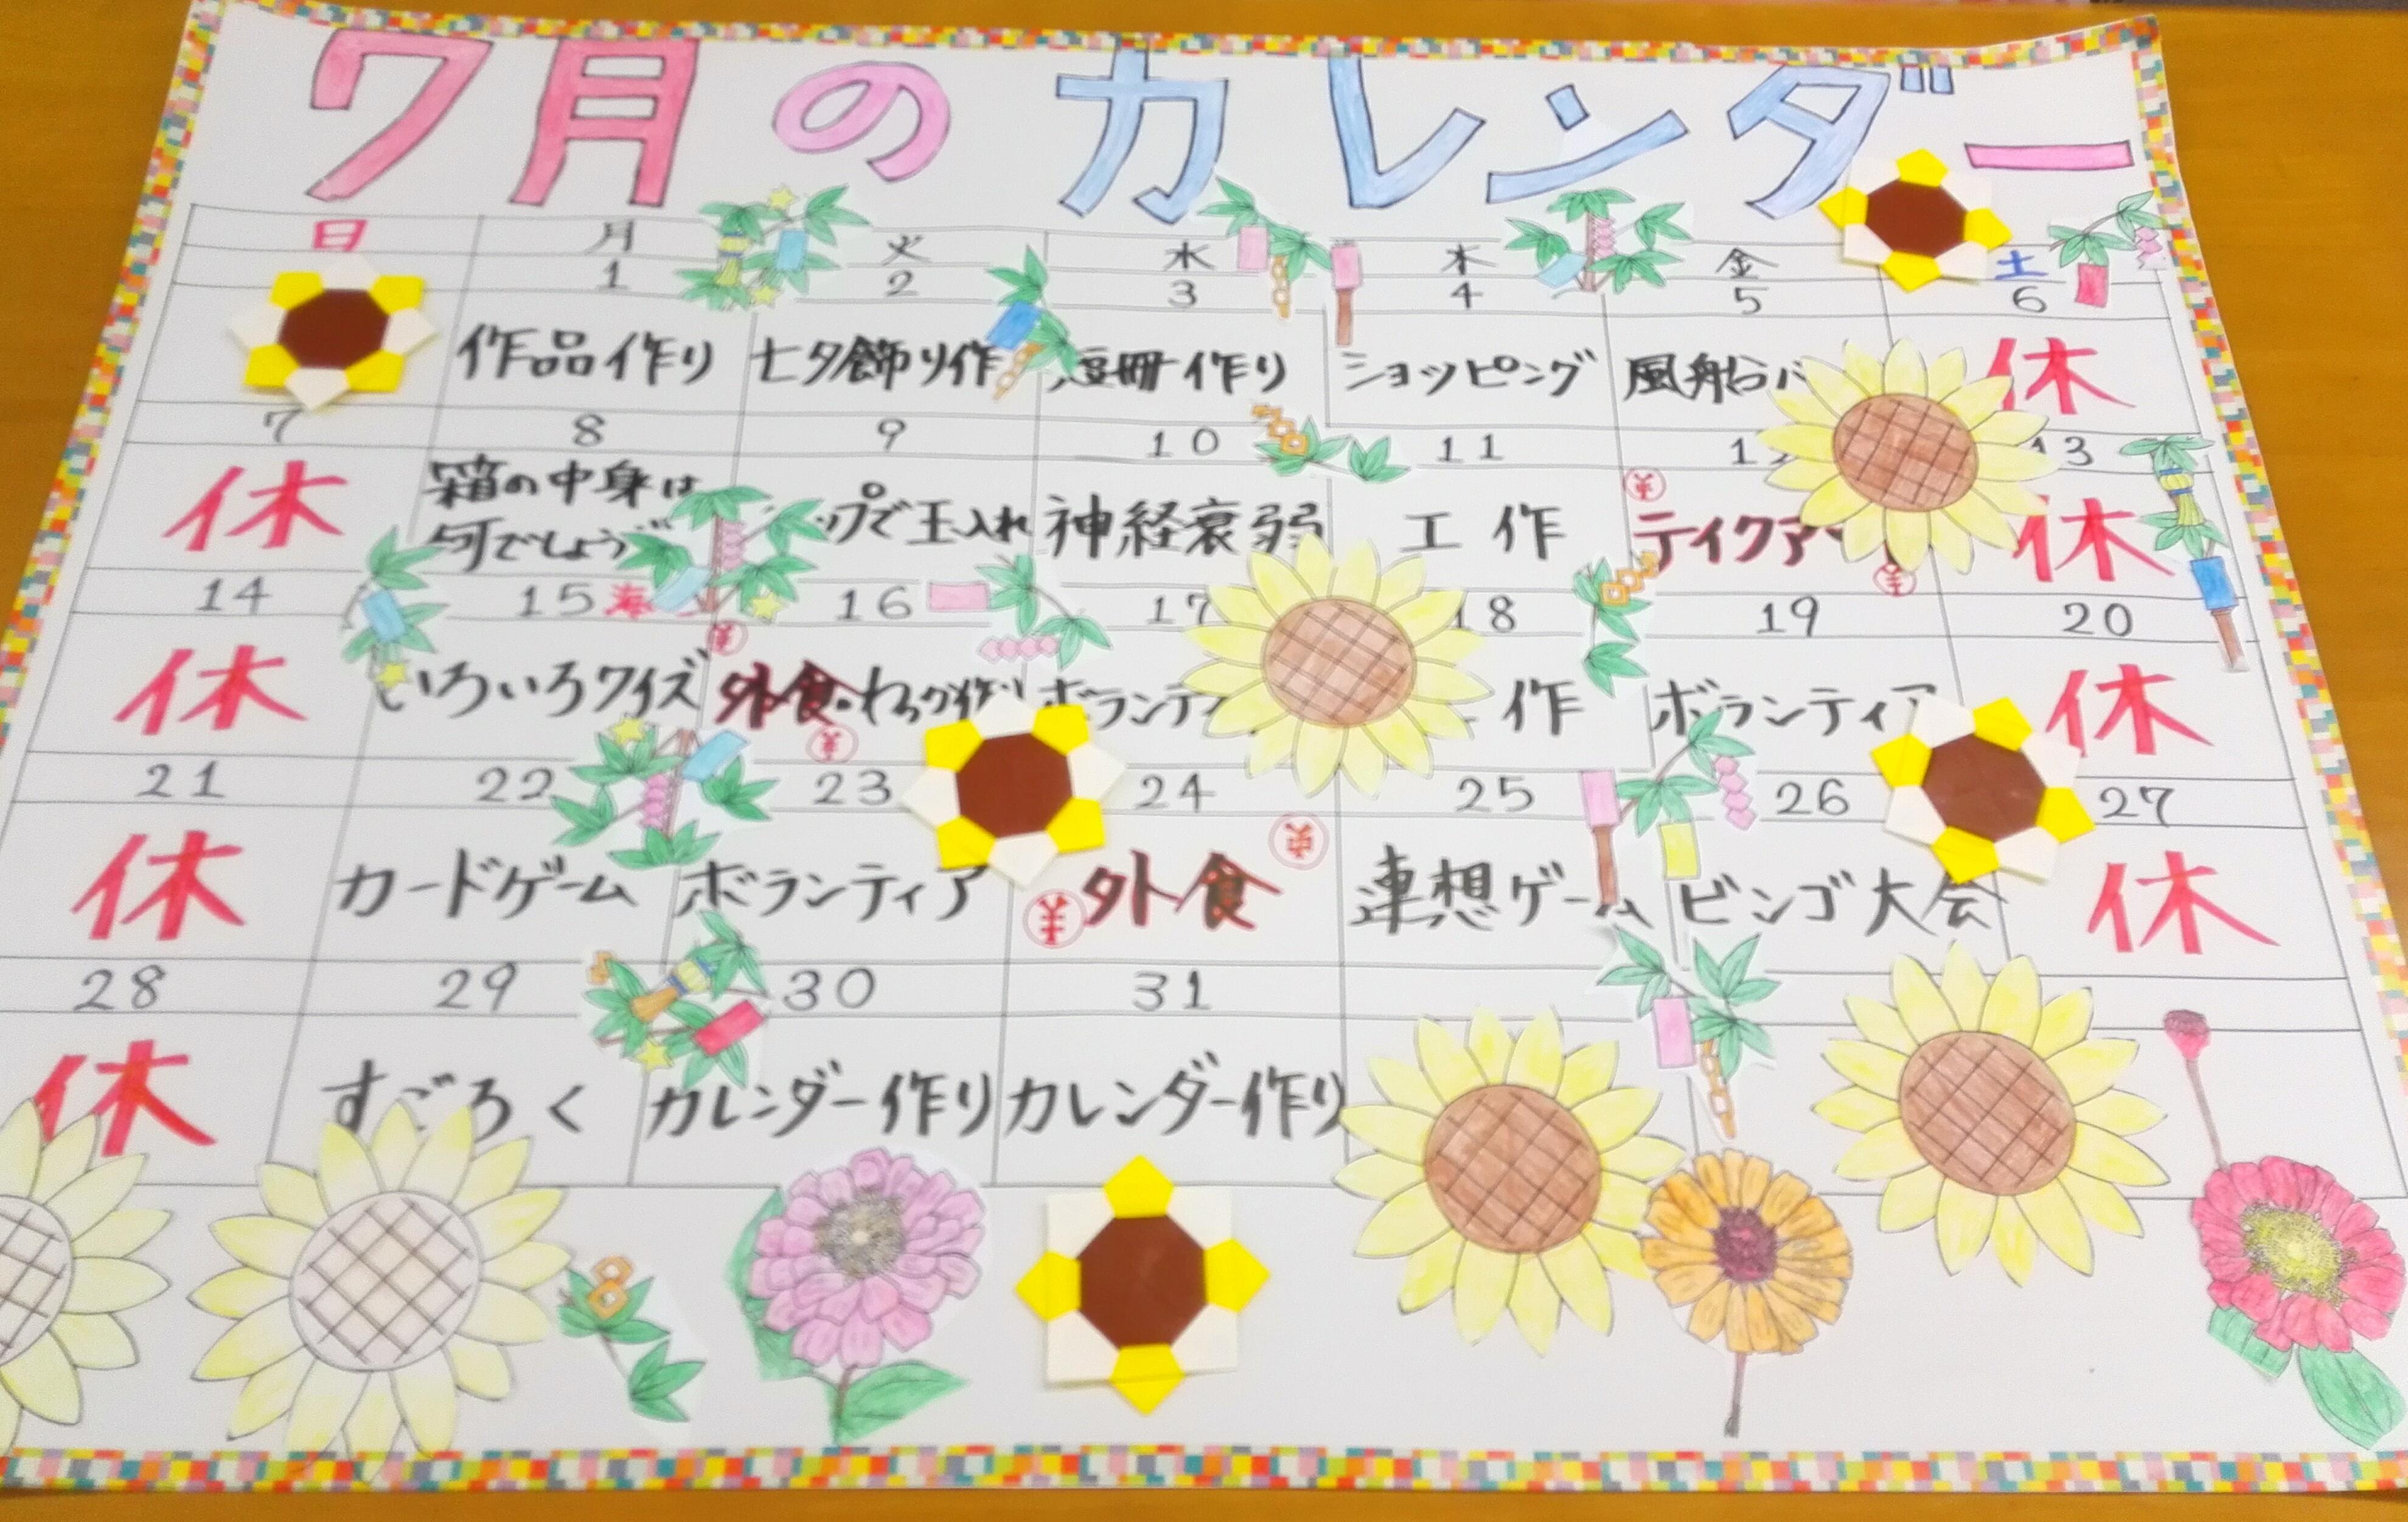 7月のカレンダー
日 月 火 水 木 金 土
1 2 3 4 5 6
作品作り 七夕飾り作 短冊作り ショッピング 風船バ 休
7 8 9 10 11 13
休 箱の中身は ップで玉入れ 神経衰弱 工作 テイクア 休
何でしょう
14 15 海 16 17 18 19 20
休 いろいろクイズ 外食 ボランティ 作 ボランティア 休
21 22 23 24 25 26 27
休 カードゲーム ボランティア 外食 連想ゲーム ビンゴ大会 休
28 29 30 31
休 すごろく カレンダー作り カレンダー作り